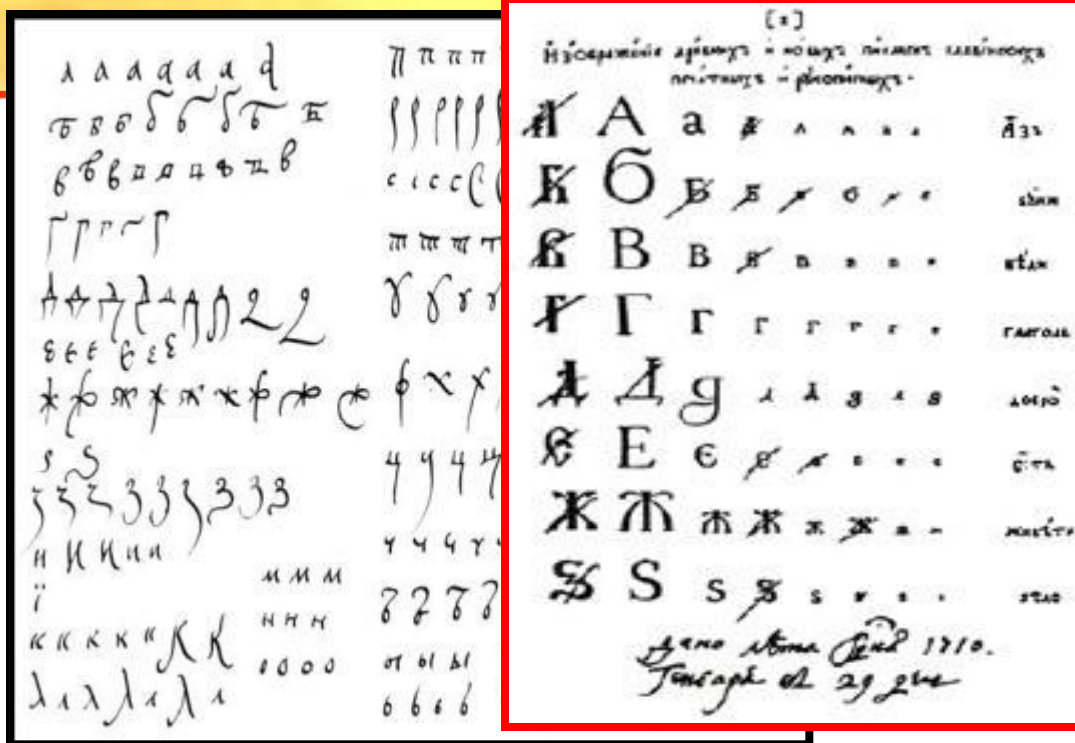 а а а а а а а
б б б б б б б б
в в в в в в в в в
г г г г г
д д д д д д д д д
є є є є є є
ж ж ж ж ж ж ж ж ж
ѕ ѕ
з з з з з з з з з
и и и и и
ї
к к к к к к к
л л л л л л л
м м м
н н н
о о о о
п п п п
р р р р р
с с с с с
т т т т
у у у у
ф х х
ц ц ц ц
ч ч ч ч
ъ ъ ъ ъ
ы ы ы
ь ь ь ь
Изображенїе древнихъ и новыхъ писменъ славенскихъ
печатныхъ и рукописныхъ.
А А а а а а а а азъ
Б Б Б Б Б б б б буки
В В В В в в в в вѣди
Г Г Г Г г г г г глаголь
Д Д д д д д д д добро
Є Е є є є е е е есть
Ж Ж ж ж ж ж ж ж живѣте
Ѕ Ѕ ѕ ѕ ѕ ѕ ѕ ѕ зѣло
дано лѣта 1710.
Генваря 29 дня